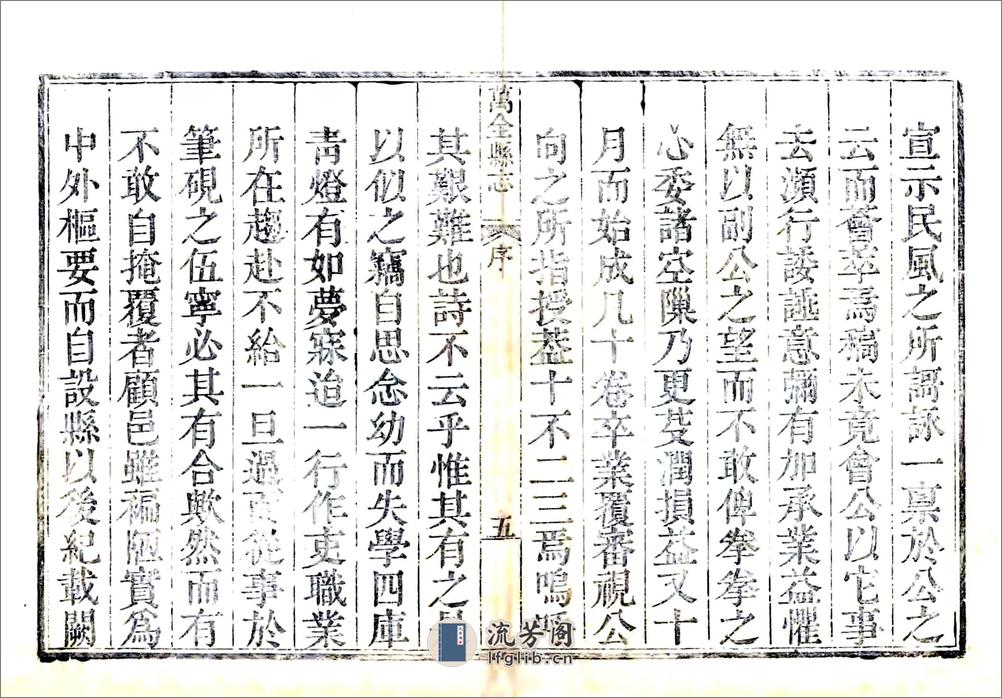 宣示民風之所謌詠一稟於公之
云而薈萃焉稿未竟會公以它事
去瀕行諉諈意彌有加承業益懼
無以副公之望而不敢俾拳拳之
心委諸空隙乃更芟潤損益又十
月而始成凡十卷卒業覆審視公
向之所指授葢十不二三焉嗚呼
萬全縣志
序
五
其艱難也詩不云乎惟其有之是
以似之竊自思念幼而失學四庫
青燈有如夢寐迨一行作吏職業
所在趨赴不給一旦過而從事於
筆硯之伍寧必其有合歟然而有
不敢自掩覆者顧邑雖褊陋實爲
中外樞要而自設縣以後紀載闕
流芳閣
lfglib.cn